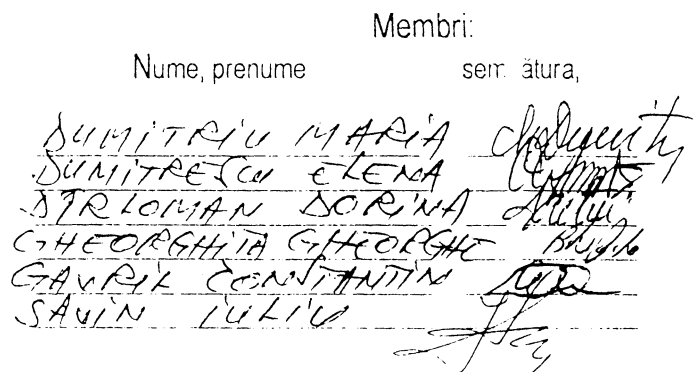 Membri:
Nume, prenume semnătura,
DUMITRIU MARIA
DUMITRESCU ELENA
DÎRLOMAN DORINA
GHEORGHITA GHEORGHE
GAVRIL CONSTANTIN
SAVIN IULIU